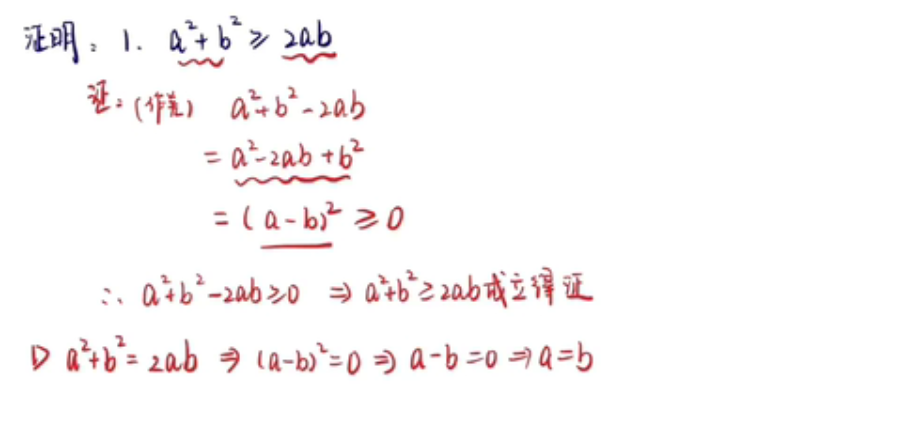 证明：1. a²+b² ≥ 2ab
证：(作差) a²+b²-2ab
= a²-2ab+b²
= (a-b)² ≥ 0
∴ a²+b²-2ab≥0 ⇒ a²+b²≥2ab成立得证
① a²+b²=2ab ⇒ (a-b)²=0 ⇒ a-b=0 ⇒ a=b